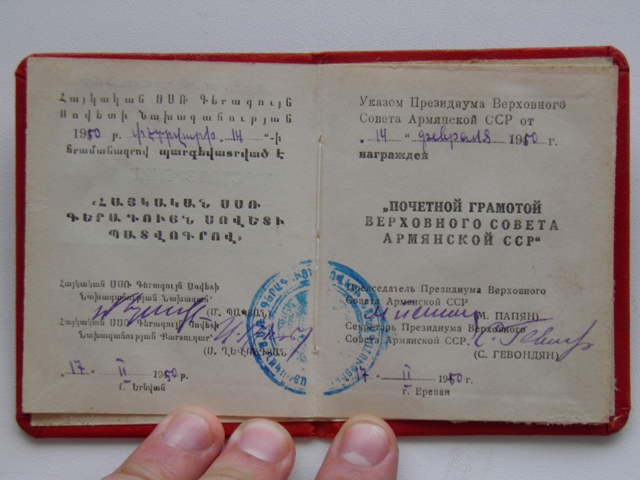 Հայկական ՍՍՌ Գերագույն
Սովետի Նախագահության
1950 թ. փետրվարի 14 "-ի
հրամանագրով պարգեվատրված է
«ՀԱՅԿԱԿԱՆ ՍՍՌ
ԳԵՐԱԳՈՒՅՆ ՍՈՎԵՏԻ
ՊԱՏՎՈԳՐՈՎ»
Հայկական ՍՍՌ Գերագույն Սովետի
Նախագահության Նախագահ՝
(Մ. ՊԱՊՅԱՆ)
Հայկական ՍՍՌ Գերագույն Սովետի
Նախագահության Քարտուղար՝
(Ս. ՂԵՎՈՆԴՅԱՆ)
„17- II 1950 թ.
ք. Երեվան
Указом Президиума Верховного
Совета Армянской ССР от
„ 14 " февраля 1950 г.
награжден
„ПОЧЕТНОЙ ГРАМОТОЙ
ВЕРХОВНОГО СОВЕТА
АРМЯНСКОЙ ССР"
Председатель Президиума Верховного
Совета Армянской ССР
(М. ПАПЯН)
Секретарь Президиума Верховного
Совета Армянской ССР.
(С. ГЕВОНДЯН)
17- II 1950 г.
г. Ереван